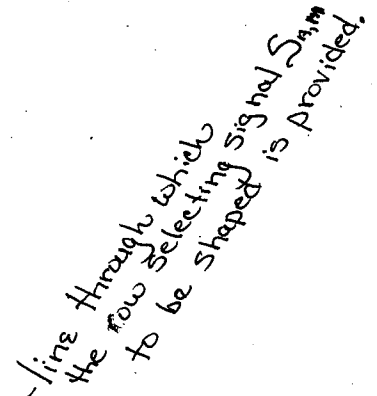 -line through which
the row selecting signal Sn,m
to be shaped is provided.